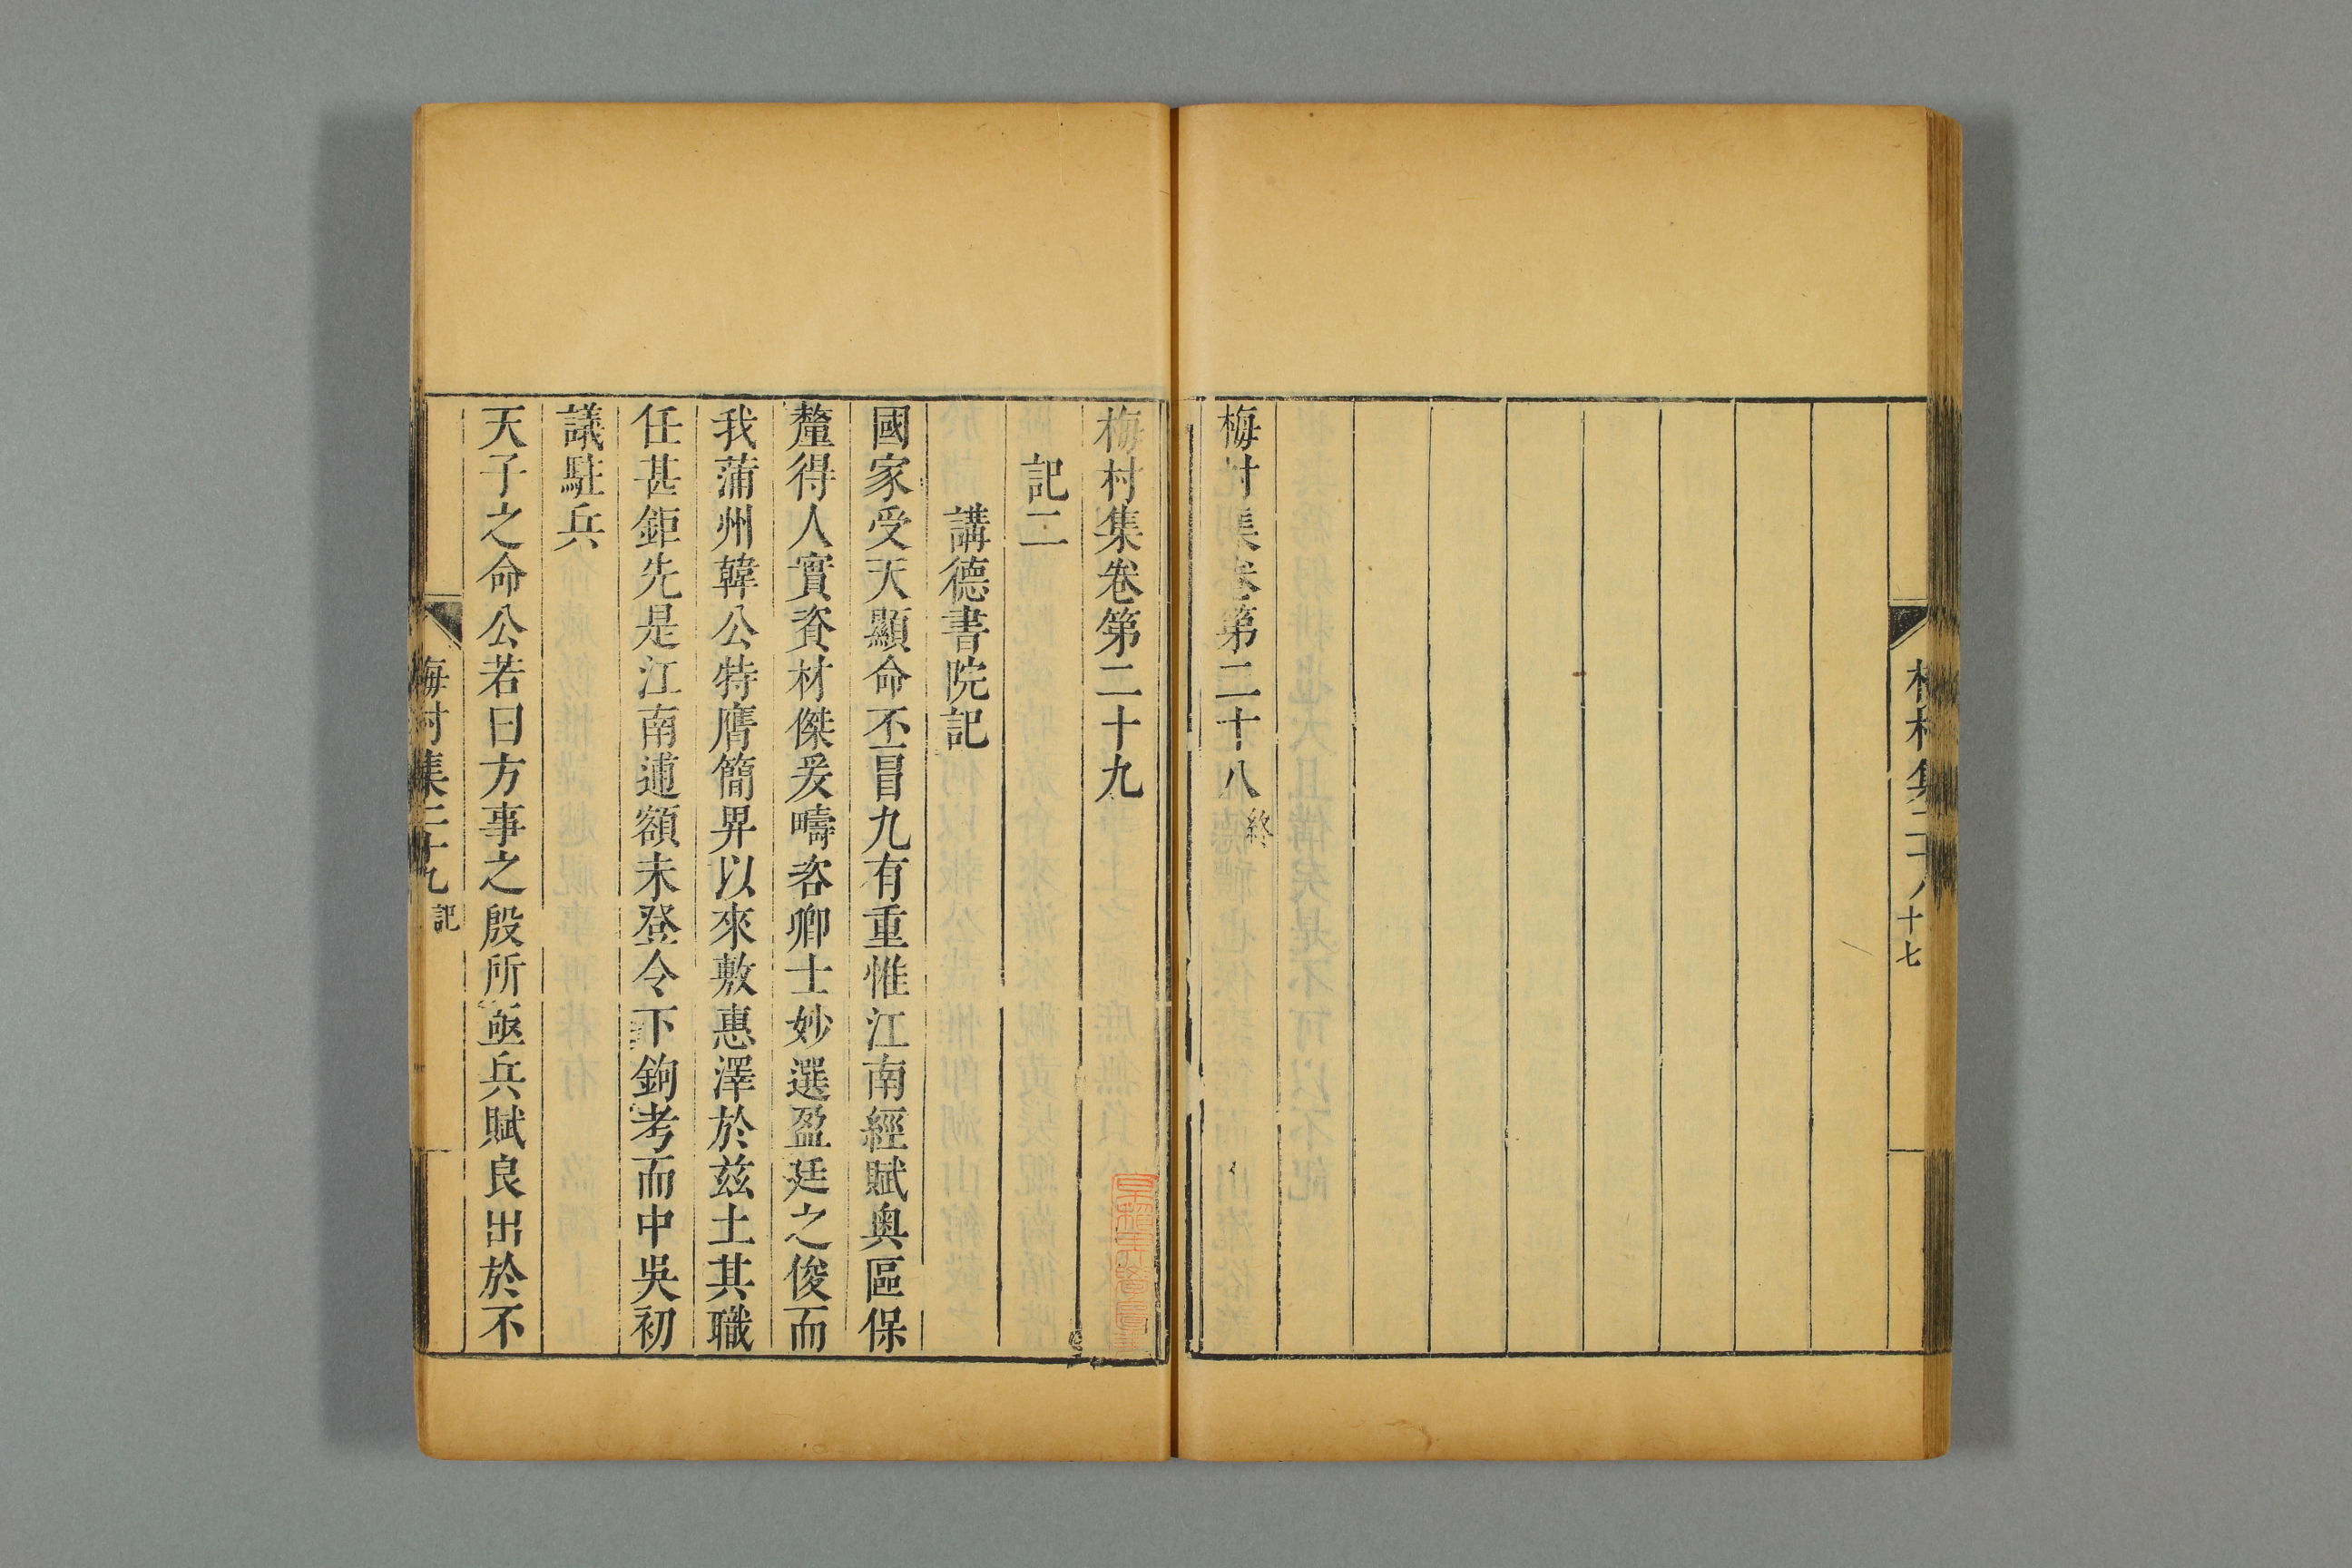 梅村集二十八 十七
梅村集卷第二十八終
梅村集卷第二十九
記二
講德書院記
國家受天顯命丕冒九有重惟江南經賦奧區保
釐得人實資材傑爰疇咨卿士妙選盈廷之俊而
我蒲州韓公特膺簡畀以來敷惠澤於茲土其職
任甚鉅先是江南逋額未登令下鉤考而中吳初
議駐兵
天子之命公若曰方事之殷所亟兵賦良出於不
梅村集二十九 記